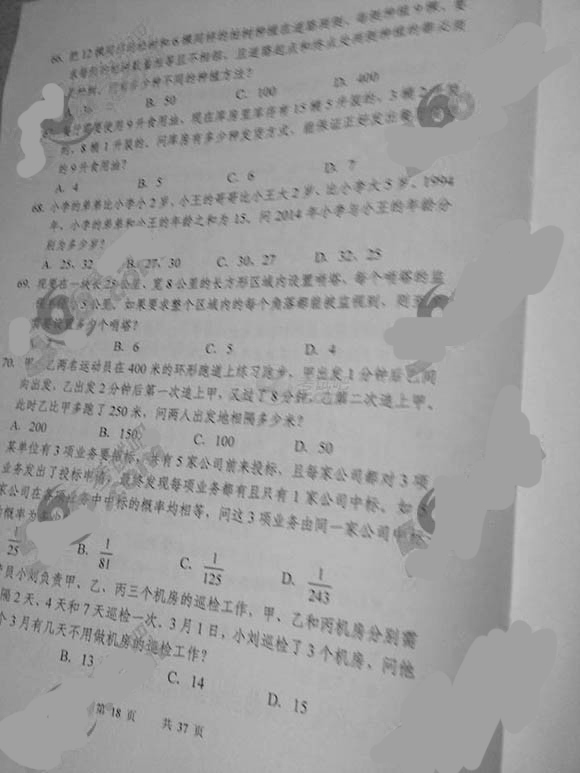 66. 把12棵同样的松树和6棵同样的柏树种植在道路两侧，每侧种植9棵，要
求每侧的柏树数量相等且不相邻，且道路起点和终点处两侧种植的都必须
是松树。问有多少种不同的种植方法？
A. 36 B. 50 C. 100 D. 400
要使用9升食用油，现在库房里库存有15桶5升装的，3桶2升装
的，8桶1升装的。问库房有多少种发货方式，能保证正好发出
的9升食用油？
A. 4 B. 5 C. 6 D. 7
68. 小李的弟弟比小李小2岁，小王的哥哥比小王大2岁、比小李大5岁。1994
年，小李的弟弟和小王的年龄之和为15。问2014年小李与小王的年龄分
别为多少岁？
A. 25，32 B. 27，30 C. 30，27 D. 32，25
69. 现要在一块长25公里、宽8公里的长方形区域内设置哨塔，每个哨塔的监
5公里。如果要求整个区域内的每个角落都能被监视到，则
需要设置多少个哨塔？
B. 6 C. 5 D. 4
70. 甲、乙两名运动员在400米的环形跑道上练习跑步，甲出发1分钟后乙同
向出发，乙出发2分钟后第一次追上甲，又过了8分钟，乙第二次追上甲，
此时乙比甲多跑了250米，问两人出发地相隔多少米？
A. 200 B. 150 C. 100 D. 50
某单位有3项业务要招标，共有5家公司前来投标，且每家公司都对3项
业务发出了投标申请，最终发现每项业务都有且只有1家公司中标。如5
家公司在各项业务中中标的概率均相等，问这3项业务由同一家公司中标
概率为多少
1/25 B. 1/81 C. 1/125 D. 1/243
员小刘负责甲、乙、丙三个机房的巡检工作，甲、乙和丙机房分别需
隔2天、4天和7天巡检一次。3月1日，小刘巡检了3个机房，问他
个3月有几天不用做机房的巡检工作？
B. 13 C. 14 D. 15
第18页 共37页